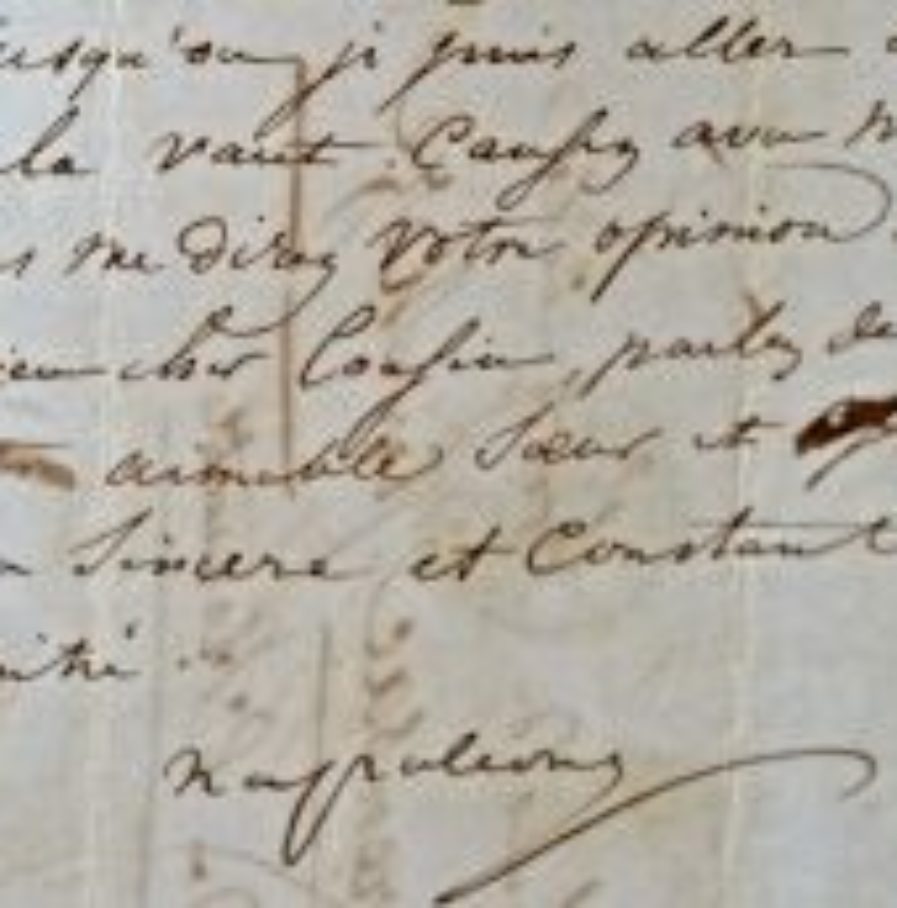 usqu'ou je puis aller
la vaut. Causez avec
s me direz votre opinion
ien cher Cousin, parlez de
aimable Soeur et
Sincere et Constant
itié.
Napoléon